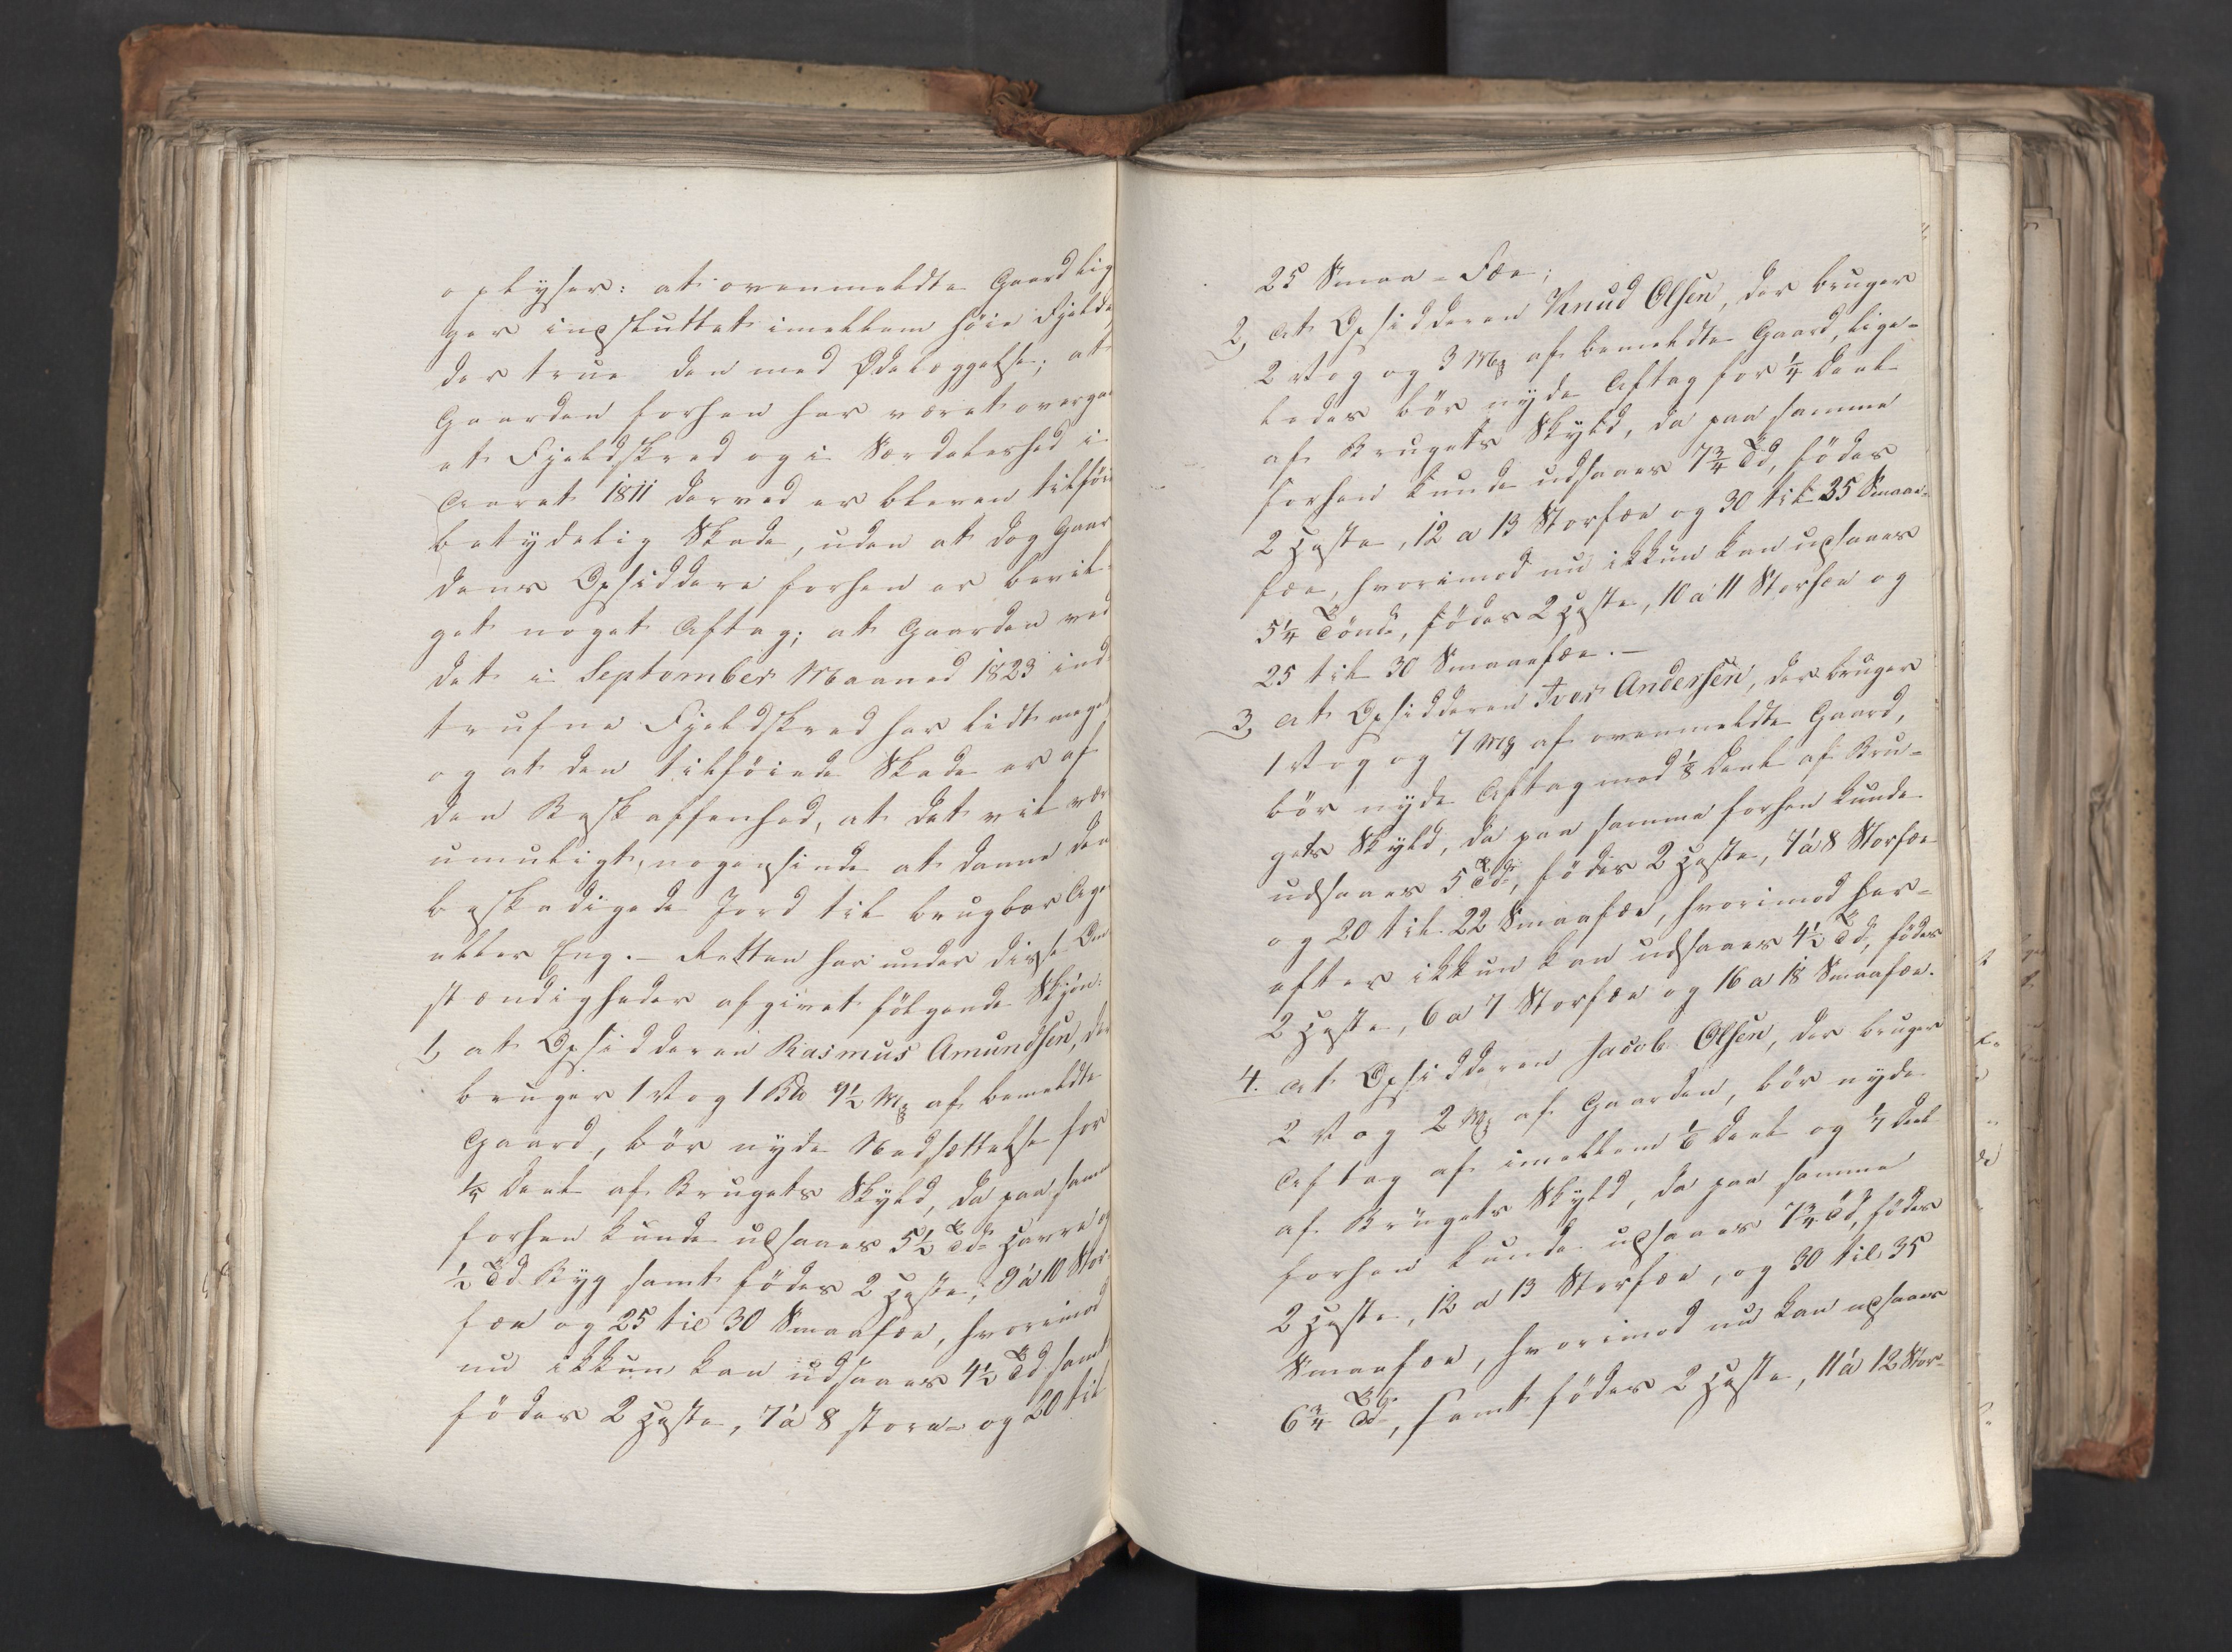 oplyser: at ovenmeldte Gaard lig
ger indsluttet imellem høie Fjelde
der true den med Ødelæggelse; at
Gaarden forhen har været overgaa
et Fjeldskred og i Særdeleshed i
Aaret 1811 derved er bleven tilføi
betydelig Skade, uden at dog Gaar
dens Opsiddere forhen er bevil
get noget Aftag; at Gaarden ved
det i September Maaned 1823 ind
trufne Fjeldskred har lidt meget
og at den tilføiede Skade er af
den Beskaffenhed, at det vil vær
umuligt, nogensinde at danne den
beskadigede Jord til brugbar Age
eller Eng. – Retten har under disse Om
stændigheder afgivet følgende Skjøn:
1, at Opsidderen Rasmus Amundsen, der
bruger 1 Vog 1 Bd 9½ Mk af bemeldte
Gaard, bør nyde Nedsættelse for
¼ Deel af Brugets Skyld, da paa samm
forhen kunde udsaaes 5½ Tdr Havre og
½ Td Byg samt fødes 2 Heste, 9 à 10 Stor
fæe og 25 til 30 Smaafæe, hvorimod
nu ikkun kan udsaaes 4½ Td samt
fødes 2 Heste, 7 à 8 store- og 20 til
25 Smaa-Fæe;
2, at Opsidderen Knud Olsen, der bruger
2 Vog og 3 Mk af bemeldte Gaard, lige-
ledes bør nyde Aftag for ¼ Deel
af Brugets Skyld, da paa samme
forhen kunde udsaaes 7¾ Td, fødes
2 Heste, 12 a 13 Storfæe og 30 til 35 Smaae-
fæe, hvorimod nu ikkun kan udsaaes
5¼ Tønde, fødes 2 Heste, 10 à 11 Storfæe og
25 til 30 Smaaefæe. –
3, at Opsidderen Iver Andersen, der bruger
1 Vog og 7 Mk af ovenmeldte Gaard,
bør nyde Aftag med ⅛ Deel af Bru-
gets Skyld, da paa samme forhen kunde
udsaaes 5 Tdr, fødes 2 Heste, 7 à 8 Storfæe
og 20 til 22 Smaafæe, hvorimod her-
efter ikkun kan udsaaes 4½ Td, fødes
2 Heste, 6 a 7 Storfæe og 16 a 18 Smaafæe.
4. at Opsidderen Jacob Olsen, der bruger
2 Vog 2 Mk af Gaarden, bør nyde
Aftag af imellem ⅙ Deel og 1/7 Deel
af Brugets Skyld, da paa samme
forhen kunde udsaaes 7¾ Td, fødes
2 Heste, 12 a 13 Storfæe, og 30 til 35
Smaafæe, hvorimod nu kan udsaaes
6¾ Tdr, samt fødes 2 Heste, 11 à 12 Stor-